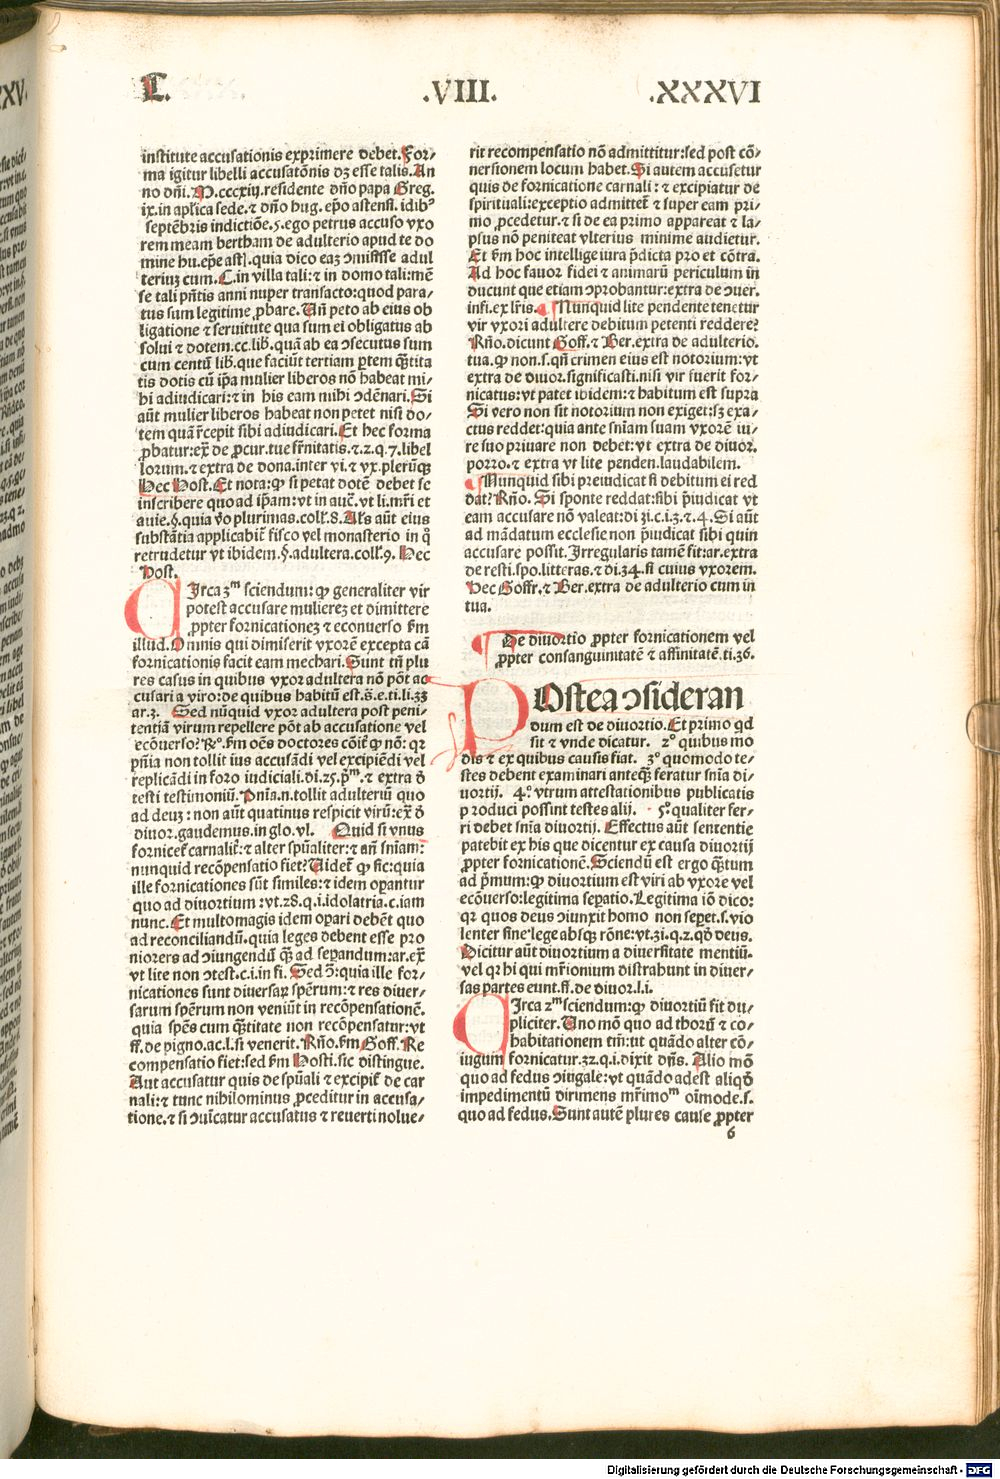 L. .VIII. .XXXVI
institute accusationis exprimere debet. For⸗
ma igitur libelli accusatōnis dꝫ esse talis. An
no dñi. M.cccxiij. residente dño papa Greg.
ix. in apl'ica sede. ⁊ dño hug. epo astensi. idibꝰ
septēbris indictiōe. 5. ego petrus accuso vxo
rem meam bertham de adulterio apud te do
mine hu. epe ast. quia dico eaꝫ ↄmisisse adul
teriuꝫ cum. C. in villa tali: ⁊ in domo tali: mē
se tali pñtis anni nuper transacto: quod para⸗
tus sum legitime ꝓbare. Uñ peto ab eius ob
ligatione ⁊ seruitute qua sum ei obligatus ab
solui ⁊ dotem. cc. lib. quā ab ea ↄsecutus sum
cum centū lib. que faciūt tertiam ꝑtem q̄ntita
tis dotis cū ip̄a mulier liberos nō habeat mi⸗
hi adiudicari: ⁊ in his eam mihi ↄdēnari. Si
aūt mulier liberos habeat non petet nisi do⸗
tem quā r̄cepit sibi adiudicari. Et hec forma
ꝓbatur: ex̄ de ꝓcur. tue fr̄nitatis. ⁊. 2. q. 7. libel
lorum. ⁊ extra de dona. inter vi. ⁊ vx. plerūqꝫ
Hec Host. Et nota: ꝙ si petat dotē debet se
inscribere quo ad ip̄am: vt in auc̄. vt li. mr̄i et
auie. §. quia v̄o plurimas. coll'. 8. Al's aūt eius
substātia applicabit' fisco vel monasterio in q̊
retrudetur vt ibidem. §. adultera. coll'. 9. Hec
Host.
CIrca 3ᵐ sciendum: ꝙ generaliter vir
potest accusare muliereꝫ et dimittere
ꝓpter fornicationeꝫ ⁊ econuerso ẜm
illud. Omnis qui dimiserit vxorē excepta cā
fornicationis facit eam mechari. Sunt tñ plu
res casus in quibus vxor adultera nō pōt ac
cusari a viro: de quibus habitū est. s̄. e. ti. li. 33
ar. 3. Sed nūquid vxor adultera post peni⸗
tentiā virum repellere pōt ab accusatione vel
ecōuerso? Rº. ẜm oēs doctores cōit' ꝙ nō: qr
pñia non tollit ius accusādi vel excipiēdi vel
replicādi in foro iudiciali. di. 25. pᵐ. ⁊ extra ð
testi testimoniū. Pnīa. n. tollit adulteriū quo
ad deuꝫ: non aūt quatinus respicit virū: ex̄ ð
diuor. gaudemus. in glo. vl. Quid si vnus
fornicet' carnalit': ⁊ alter spūaliter: ⁊ añ sniam:
nunquid recōpensatio fiet? Uidet' ꝙ sic: quia
ille fornicationes sūt similes: ⁊ idem oꝑantur
quo ad diuortium: vt. 28. q. i. idolatria. c. iam
nunc. Et multomagis idem oꝑari debēt quo
ad reconciliandū. quia leges debent esse pro
niores ad ↄiungendū q̄ꝫ ad seꝑandum: ar. ex̄
vt lite non ↄtest. c. i. in fi. Sed ↄ̄: quia ille for⸗
nicationes sunt diuersaꝝ spērum: ⁊ res diuer⸗
sarum spērum non veniūt in recōpensationē.
quia spēs cum q̄ntitate non recōpensatur: vt
ff. de pigno. ac. l. si venerit. Rñо. ẜm Goff. Re
compensatio fiet: sed ẜm Hosti. sic distingue.
Aut accusatur quis de spūali ⁊ excipit' de car
nali: ⁊ tunc nihilominus ꝓceditur in accusa⸗
tione. ⁊ si ↄuīcatur accusatus ⁊ reuerti nolue⸗
rit recompensatio nō admittitur: sed post cō⸗
uersionem locum habet. Si autem accusetur
quis de fornicatione carnali: ⁊ excipiatur de
spirituali: exceptio admittet' ⁊ super eam pri⸗
mo ꝓcedetur. ⁊ si de ea primo appareat ⁊ la⸗
psus nō peniteat vlterius minime audietur.
Et ẜm hoc intellige iura p̄dicta pro et cōtra.
Ad hoc fauor fidei ⁊ animarū periculum in
ducunt que etiam ↄprobantur: extra de ↄuer.
infi. ex lr̄is. ¶ Nunquid lite pendente tenetur
vir vxori adultere debitum petenti reddere?
Rño. dicunt Goff. ⁊ Ber. extra de adulterio.
tua. ꝙ non. s. qñ crimen eius est notorium: vt
extra de diuor. significasti. nisi vir fuerit for⸗
nicatus: vt patet ibidem: ⁊ habitum est supra
Si vero non sit notorium non exiget: sꝫ exa⸗
ctus reddet: quia ante sniam suam vxorē iu⸗
re suo priuare non debet: vt extra de diuor.
porro. ⁊ extra vt lite penden. laudabilem.
¶ Nunquid sibi preiudicat si debitum ei red
dat? Rño. Si sponte reddat: sibi p̄iudicat vt
eam accusare nō valeat: di 3i. c. i. 3. ⁊. 4. Si aūt
ad mādatum ecclesie non p̄iudicat sibi quin
accusare possit. Irregularis tamē fit: ar. extra
de resti. spo. litteras. ⁊ di. 34. si cuius vxorem.
Hec Goffr. ⁊ Ber. extra de adulterio cum in
tua.
¶ De diuortio ꝓpter fornicationem vel
ꝓpter consanguinitatē ⁊ affinitatē. ti. 36.
POstea ↄsideran
dum est de diuortio. Et primo qd
sit ⁊ vnde dicatur. 2º quibus mo
dis ⁊ ex quibus causis fiat. 3º quomodo te⸗
stes debent examinari anteq̄ꝫ feratur snīa di⸗
uortij. 4º vtrum attestationibus publicatis
produci possint testes alij. 5º qualiter fer⸗
ri debet snīa diuortij. Effectus aūt sententie
patebit ex his que dicentur ex causa diuortij
ꝓpter fornicationē. Sciendū est ergo q̄ntum
ad p̄mum: ꝙ diuortium est viri ab vxore vel
ecōuerso: legitima seꝑatio. Legitima iō dico:
qr quos deus ↄiunxit homo non seꝑet. s. vio
lenter sine lege absqꝫ rōne: vt. 3i. q. 2. qð deus.
Dicitur aūt diuortium a diuersitate mentiū.
vel qr hi qui mr̄ionium distrahunt in diuer⸗
sas partes eunt. ff. de diuor. l. i.
CIrca 2ᵐ sciendum: ꝙ diuortiū fit du⸗
pliciter. Uno mō quo ad thorū ⁊ co⸗
habitationem tm̄: vt quādo alter cō⸗
iugum fornicatur. 32. q. i. dixit dñs. Alio mō
quo ad fedus ↄiugale: vt quādo adest aliqð
impedimentū dirimens mr̄imoᵐ oīmode. s.
quo ad fedus. Sunt autē plures cause ꝓpter
6
Digitalisierung gefördert durch die Deutsche Forschungsgemeinschaft - DFG